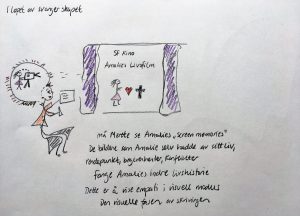 I løpet av svangerskapet
SF Kino
Amalies Livsfilm
må Merthe se Amalies „screen memories"
De bildene som Amalie selv hadde av sitt liv,
vendepunkt, begivenheter, konflikter
Fange Amalies indre livshistorie
Dette er å vise empati i visuell modus
Den visuelle fasen av skrivingen